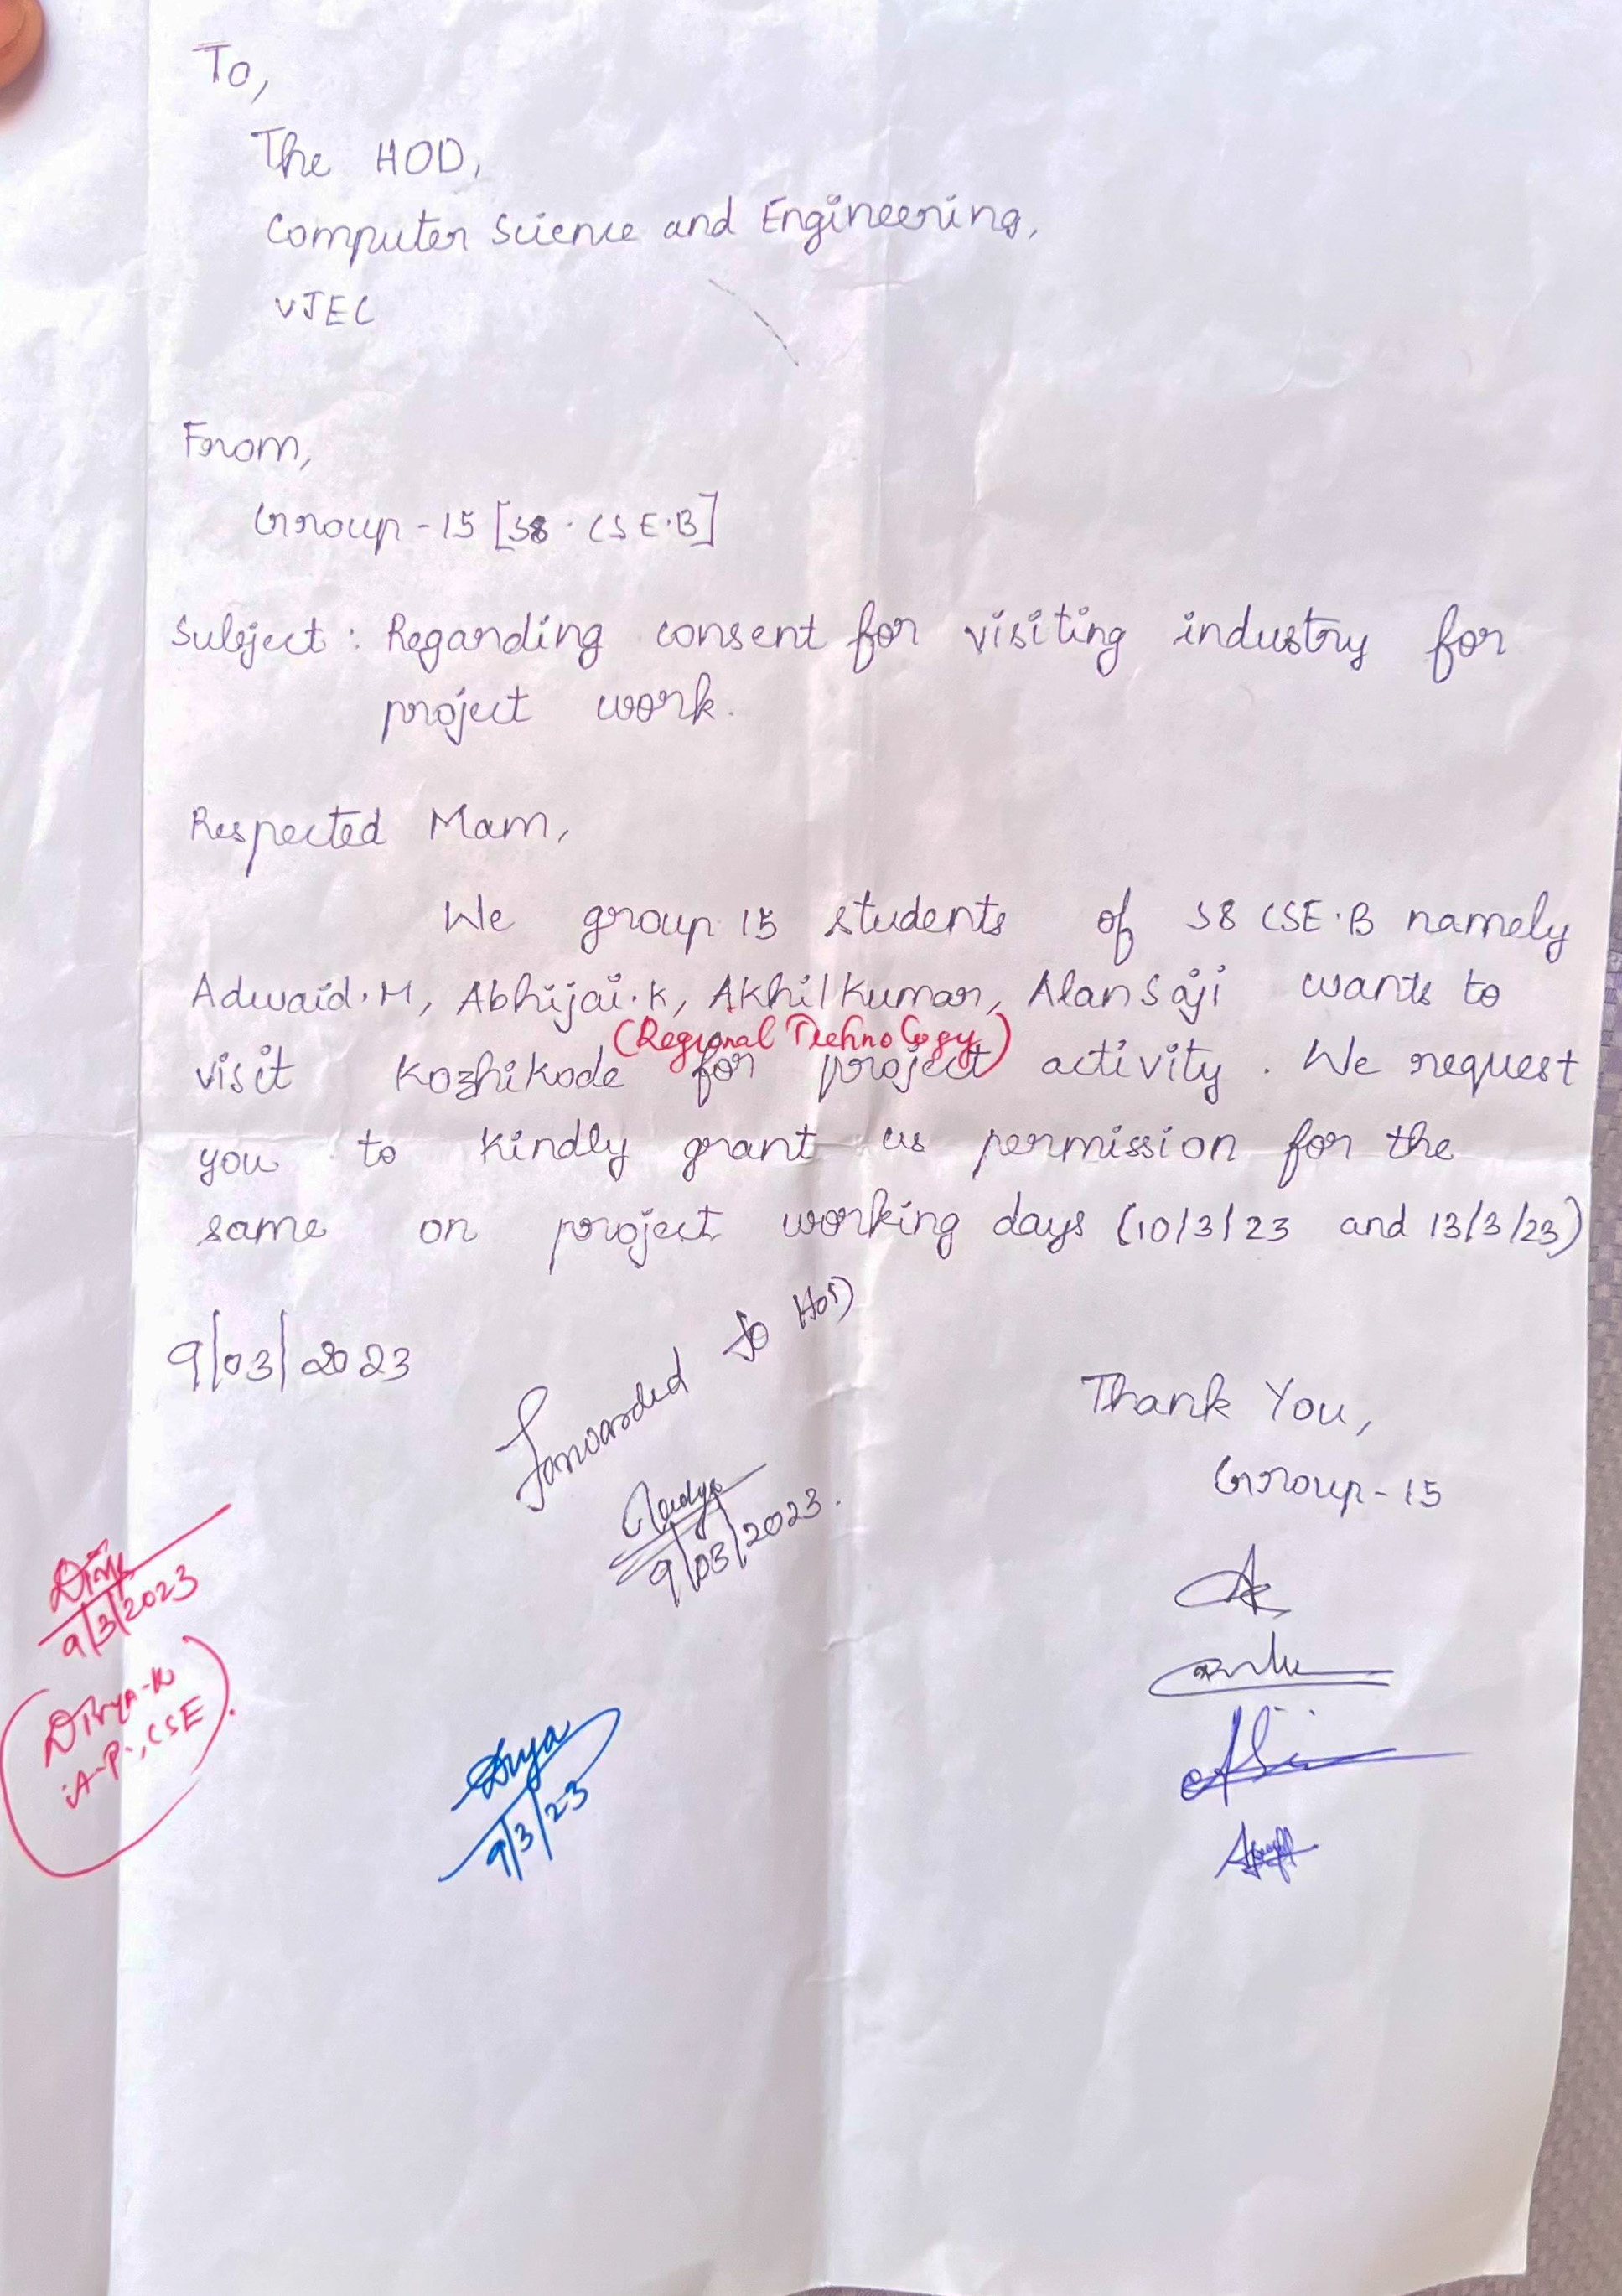 To,
The HOD,
Computer Science and Engineering,
VJEC
From,
Group - 15 [S8 . CSE.B]
Subject : Regarding consent for visiting industry for
project work.
Respected Mam,
We group 15 students of S8 CSE.B namely
Adwaid.M, Abhijai.K, Akhil Kumar, Alan Saji wants to
(Regional Technology)
visit Kozhikode for project activity . We request
you to kindly grant us permission for the
same on project working days (10/3/23 and 13/3/23)
9/03/2023
Forwarded to HOD
9/03/2023.
Thank You,
Group - 15
9/3/2023
Divya-K
A.P., CSE
9/3/23